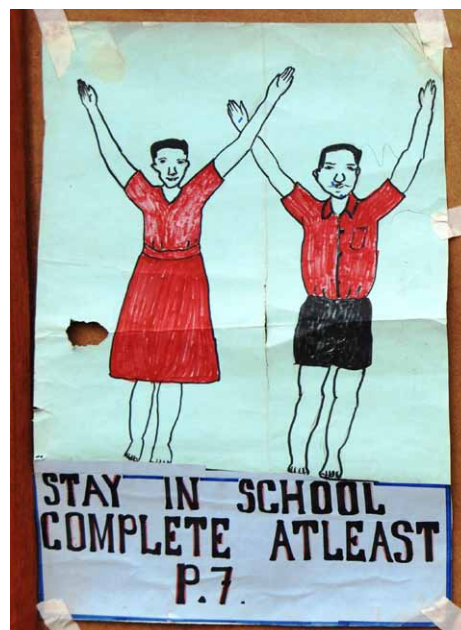 STAY IN SCHOOL
COMPLETE ATLEAST
P.7.